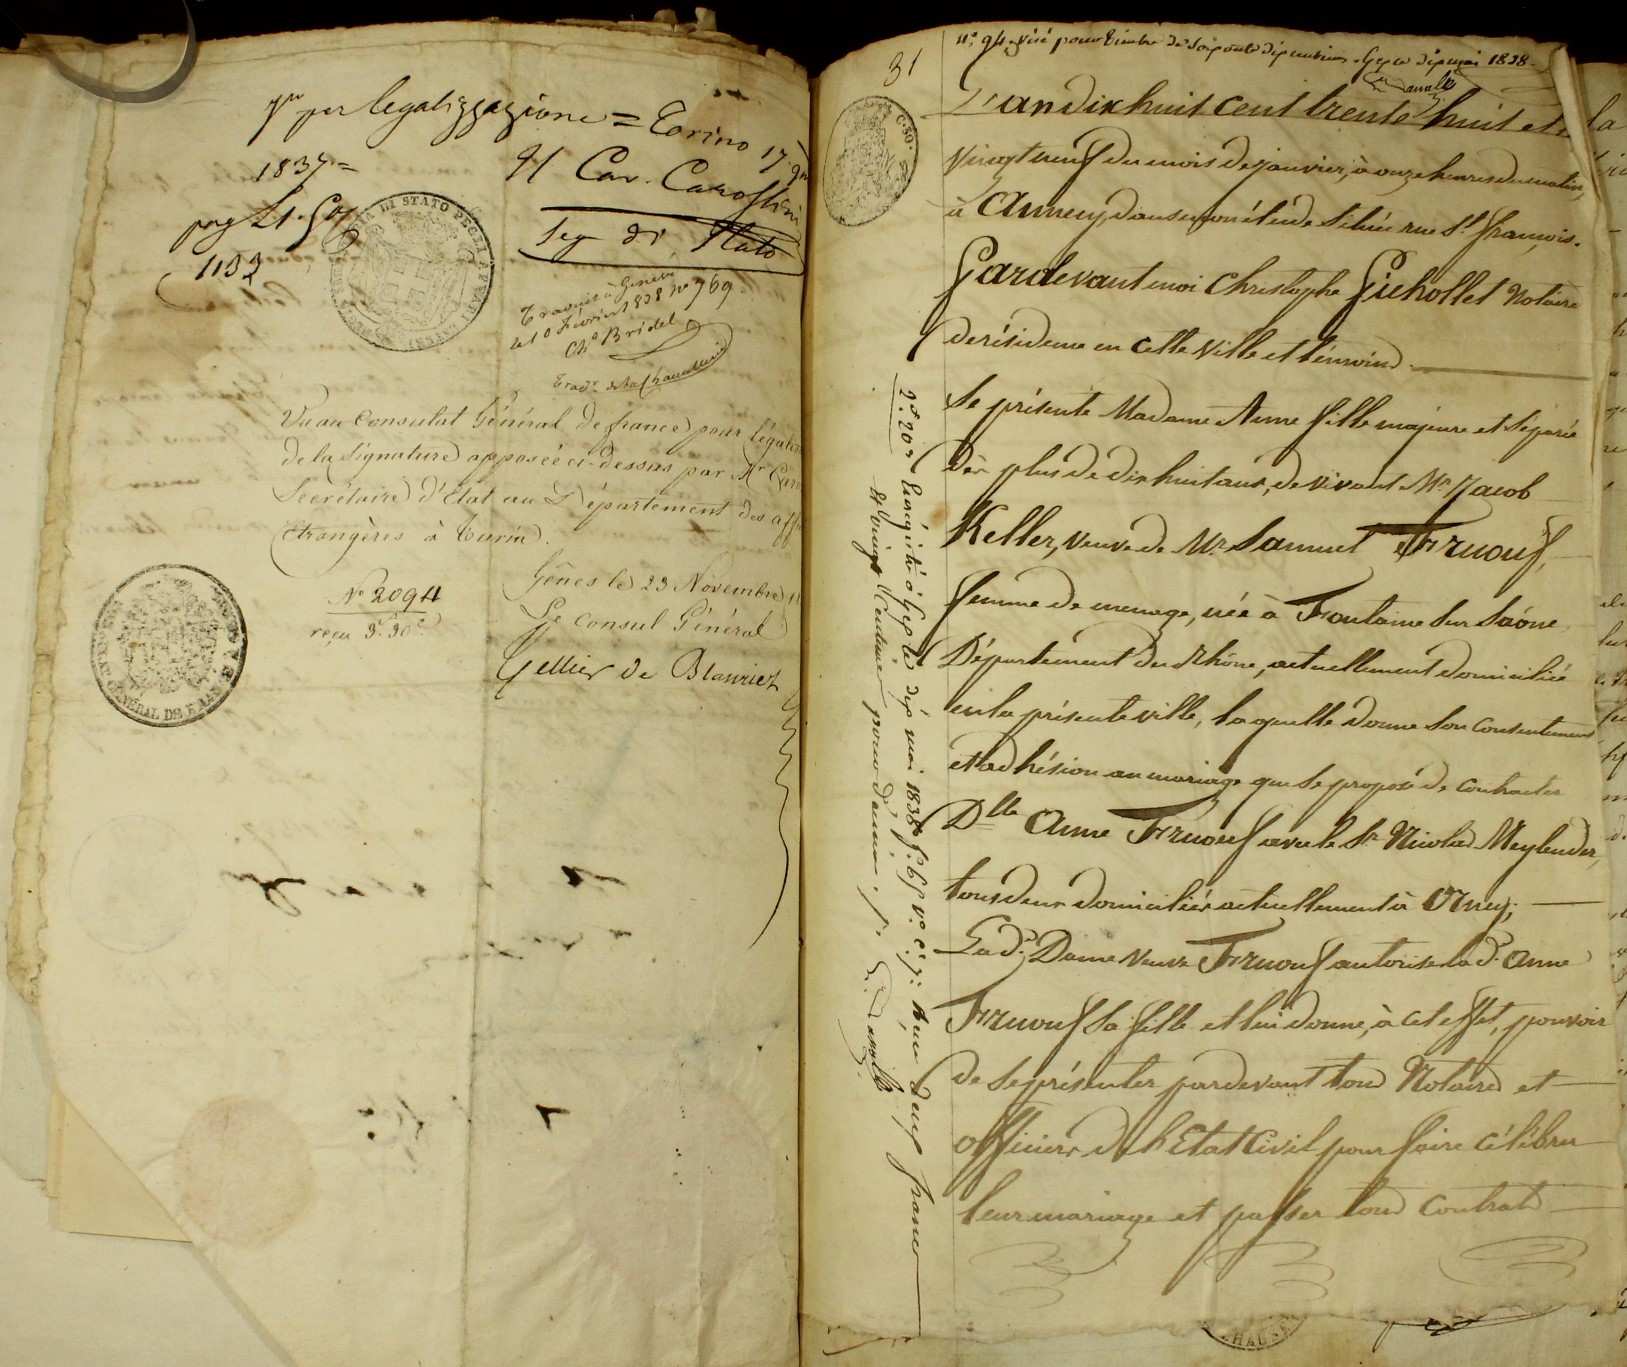 per legalizzazione = Torino 17
1837 =
Il Cav. Carossini
Seg di Stato
1133
DI STATO PEGLI AFFARI
Traduit à Genève
le 10 Février 1838 No 769
Chs Bridel
Vu au Consulat Général de france pour légalis
de la Signature apposée ci-dessus par Mr Caro
Secrétaire d'Etat au Département des aff
Etrangères à Turin.
No 2094
reçu 3f. 30c
Gênes le 23 Novembre
Le Consul Général
Tellier de Blanriez
GÉNÉRAL DE
31
No 94. Visé pour timbre de Gex le dix mai 1838
L'an dix huit cent trente huit et le
Vingt neuf du mois de janvier, à onze heures du matin,
à Annecy, dans mon étude située rue St. françois.
Pardevant moi Christophe Pichollet Notaire
de résidence en cette Ville et témoins
Se présente Madame Anne fille majeure et Séparée
dès plus de dix huit ans, de vivant Mr. Jacob
Keller, Veuve de Mr. Samuel Fruouf,
femme de menage, née à Fontaine Sur Saône
Département du Rhône, actuellement domiciliée
en la présente ville, laquelle donne Son Consentement
et adhésion au mariage que Se propose de Contracter
Dlle Anne Fruouf avec le Sr. Nicolas Meylender,
tous deux domiciliés actuellement à Orney;
La de. Dame Veuve Fruouf autorise la de. Anne
Fruouf Sa fille et lui donne, à cet effet, pouvoir
de Se présenter pardevant tous Notaires et
officiers de l'Etat Civil pour faire Célébrer
leur mariage et passer tous Contrats
2f. 20c Enregistré à Gex le dix mai 1838 f. 65 Vo. C. 7. Reçu deux francs
et vingt Centimes pour dixième.